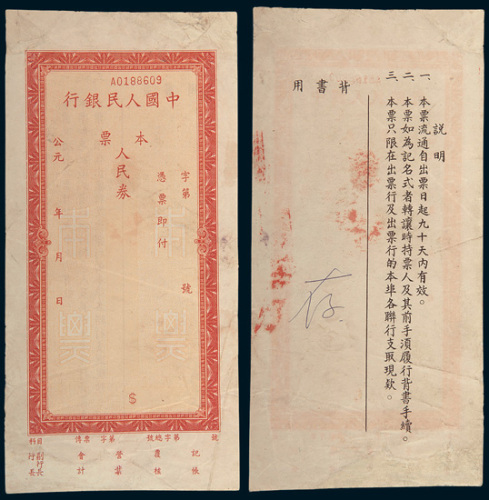 A0188609
中國人民銀行
本票
人民券
字第 號
憑票即付
公元 年 月 日
$
科目 傳票 字第 號 總字第 號
記帳
覆核
營業
會計
副行長
行長
説明
一、本票流通自出票日起九十天內有效。
二、本票如為記名式者轉讓時持票人及其前手須履行背書手續。
三、本票只限在出票行及出票行的本埠各聯行支取現欵。
背書用
存